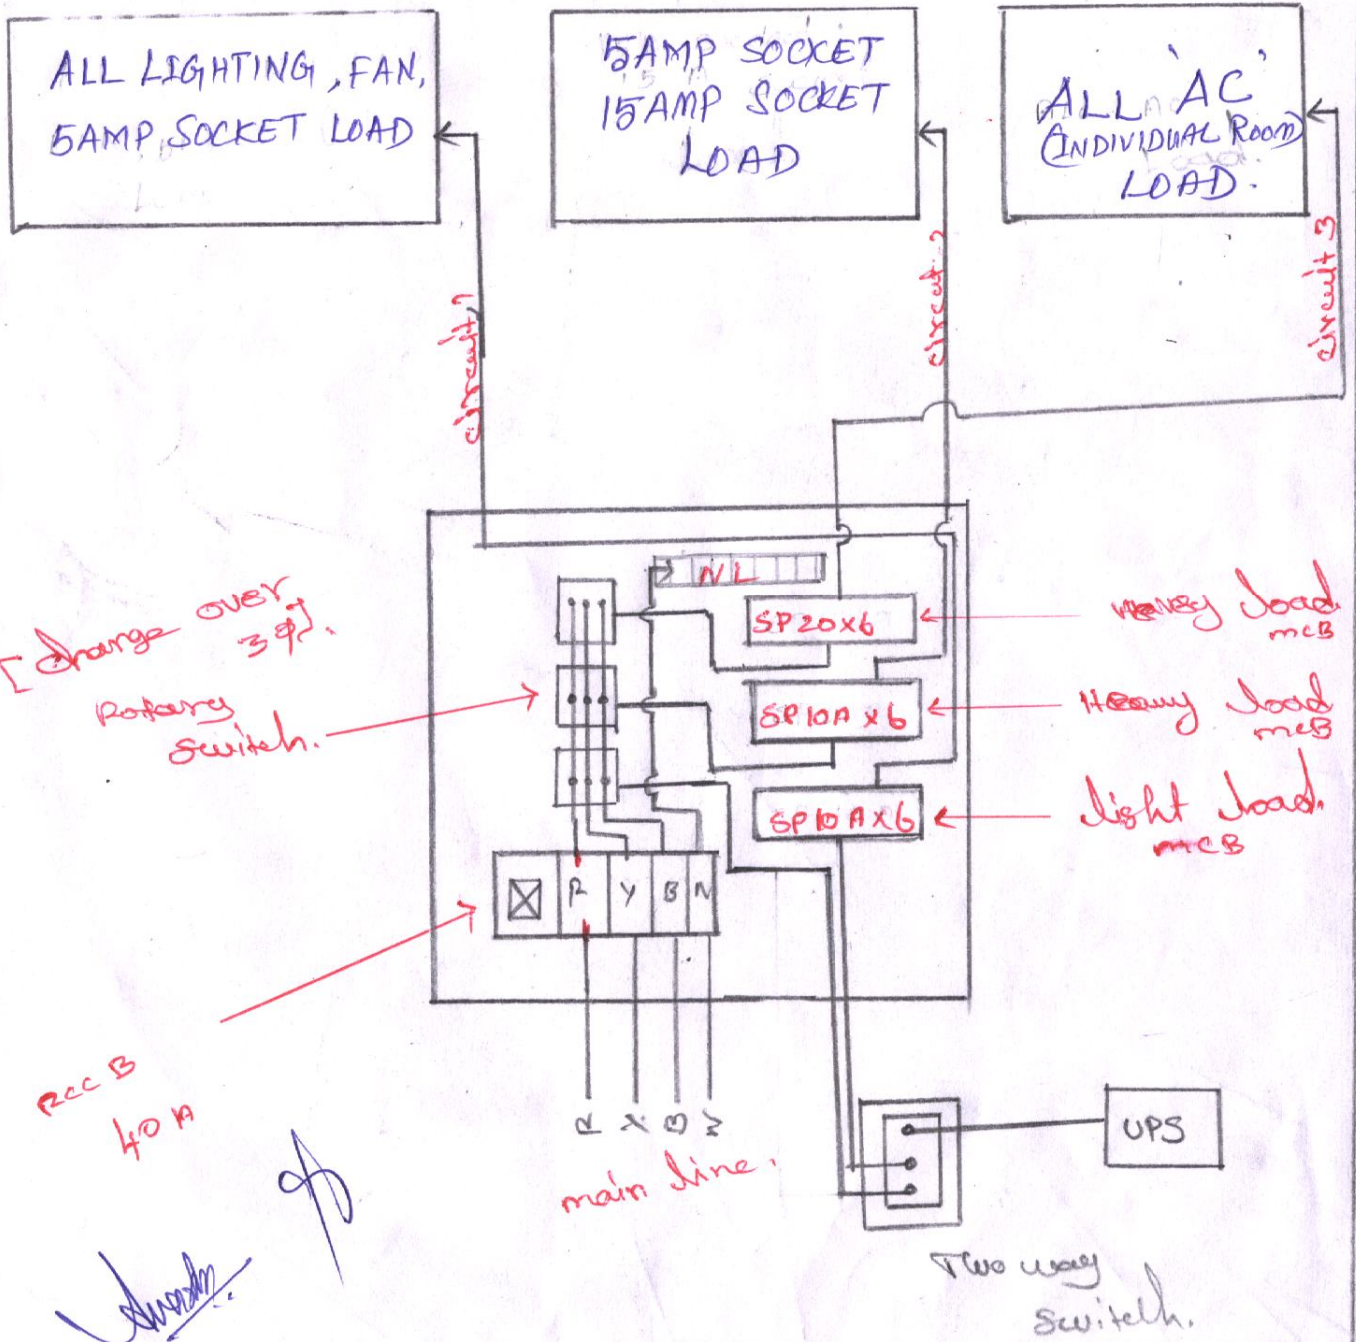 ALL LIGHTING, FAN,
5AMP, SOCKET LOAD
5AMP SOCKET
15AMP SOCKET
LOAD
ALL 'AC'
(INDIVIDUAL ROOM)
LOAD.
circuit, 1
circuit - 2
circuit 3
[change over
3 φ].
Rotary
switch.
NL
SP20X6
SP10A X6
SP10AX6
Heavy load
mcB
Heavy load
mcB
light load.
mcB
R Y B N
RCCB
40 A
R Y B N
main line.
UPS
Two way
switch.